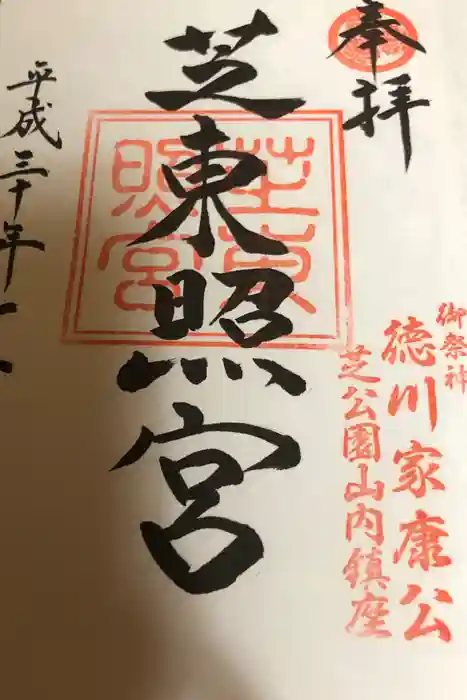 奉拝
御祭神
徳川家康公
芝公園山内鎮座
芝東照宮
芝東照宮
平成三十年一